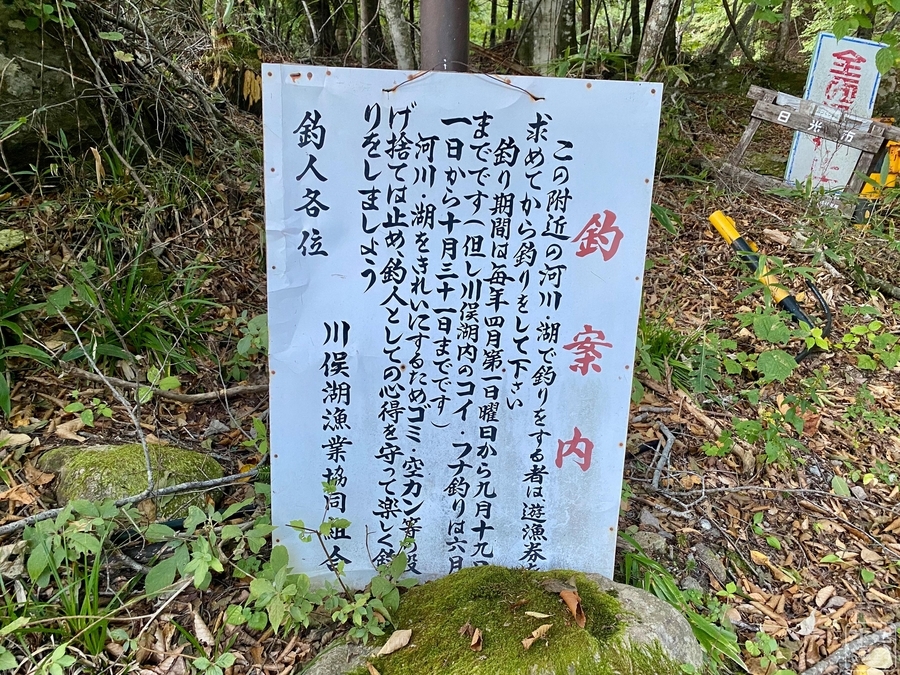 釣案内
この附近の河川・湖で釣りをする者は遊漁券を
求めてから釣りをして下さい
釣り期間は毎年四月第一日曜日から九月十九日
までです(但し川俣湖内のコイ・フナ釣りは六月
一日から十月三十一日までです)
河川・湖をきれいにするためゴミ・空カン等の投
げ捨ては止め、釣人としての心得を守って楽しく釣
りをしましょう
釣人各位
川俣湖漁業協同組合
日光市